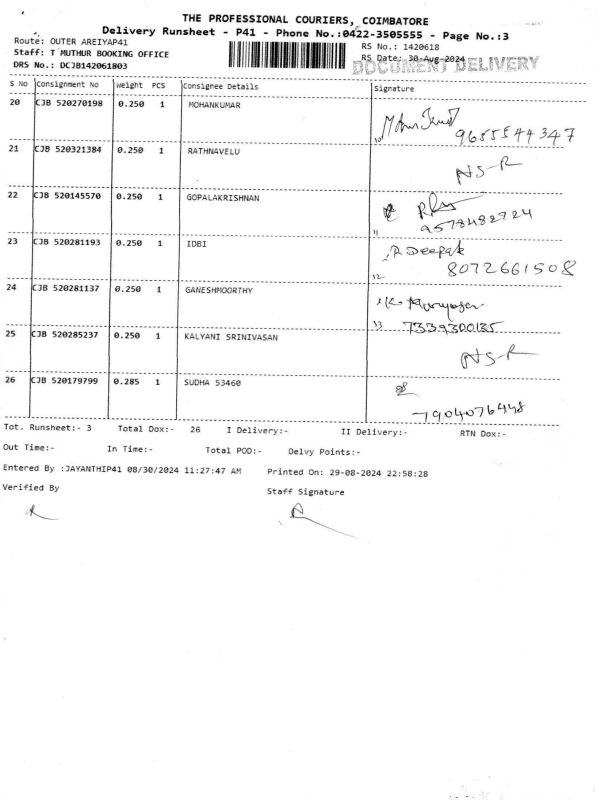 THE PROFESSIONAL COURIERS, COIMBATORE
Delivery Runsheet - P41 - Phone No.:0422-3505555 - Page No.:3
Route: OUTER AREIYAP41
RS No.: 1420618
Staff: T MUTHUR BOOKING OFFICE
RS Date: 30-Aug-2024
DOCUMENT DELIVERY
DRS No.: DCJB142061803
S No Consignment No Weight PCS Consignee Details Signature
20 CJB 520270198 0.250 1 MOHANKUMAR
10 9655544347
21 CJB 520321384 0.250 1 RATHNAVELU
NS-R
22 CJB 520145570 0.250 1 GOPALAKRISHNAN
11 9578482724
23 CJB 520281193 0.250 1 IDBI
R Deepak
12 8072661508
24 CJB 520281137 0.250 1 GANESHMOORTHY
13 7339300135
25 CJB 520285237 0.250 1 KALYANI SRINIVASAN
NS-R
26 CJB 520179799 0.285 1 SUDHA 53460
7904076448
Tot. Runsheet:- 3 Total Dox:- 26 I Delivery:- II Delivery:- RTN Dox:-
Out Time:- In Time:- Total POD:- Delvy Points:-
Entered By :JAYANTHIP41 08/30/2024 11:27:47 AM Printed On: 29-08-2024 22:58:28
Verified By
Staff Signature